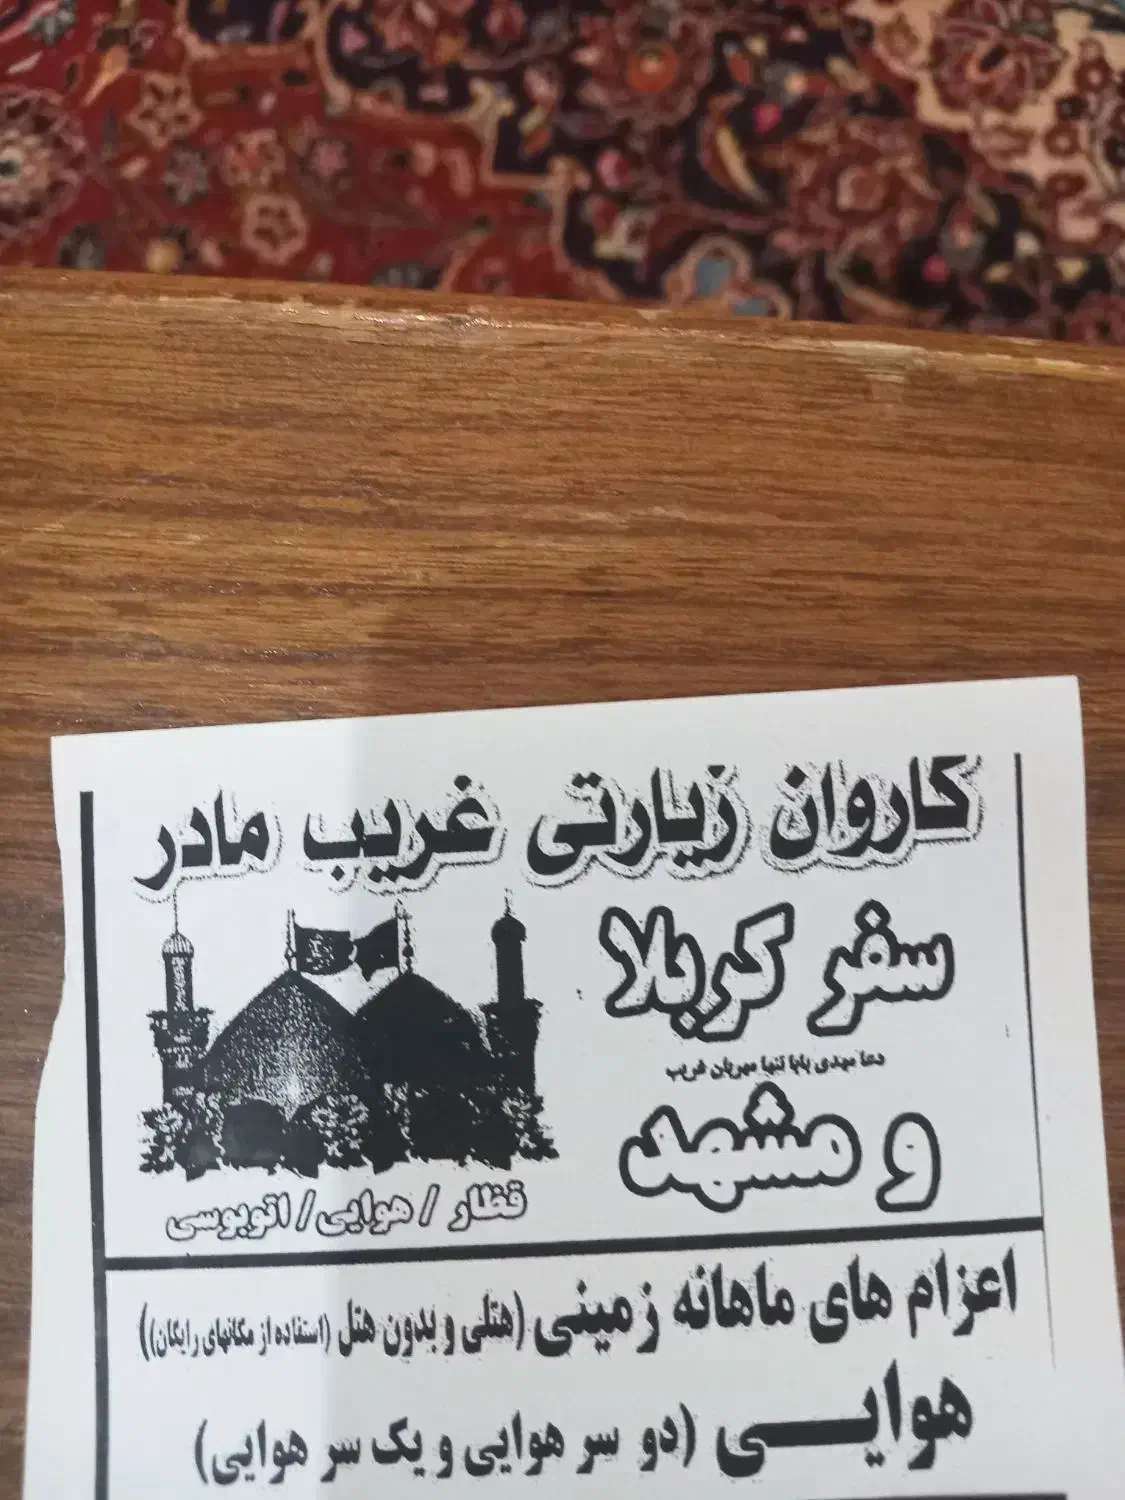 کاروان زیارتی غریب مادر
سفر کربلا
دعا مهدی بابا تنها مهربان غریب
و مشهد
قطار / هوایی / اتوبوسی
اعزام های ماهانه زمینی (هتلی و بدون هتل (استفاده از مکانهای رایگان))
هوایــی (دو سر هوایی و یک سر هوایی)